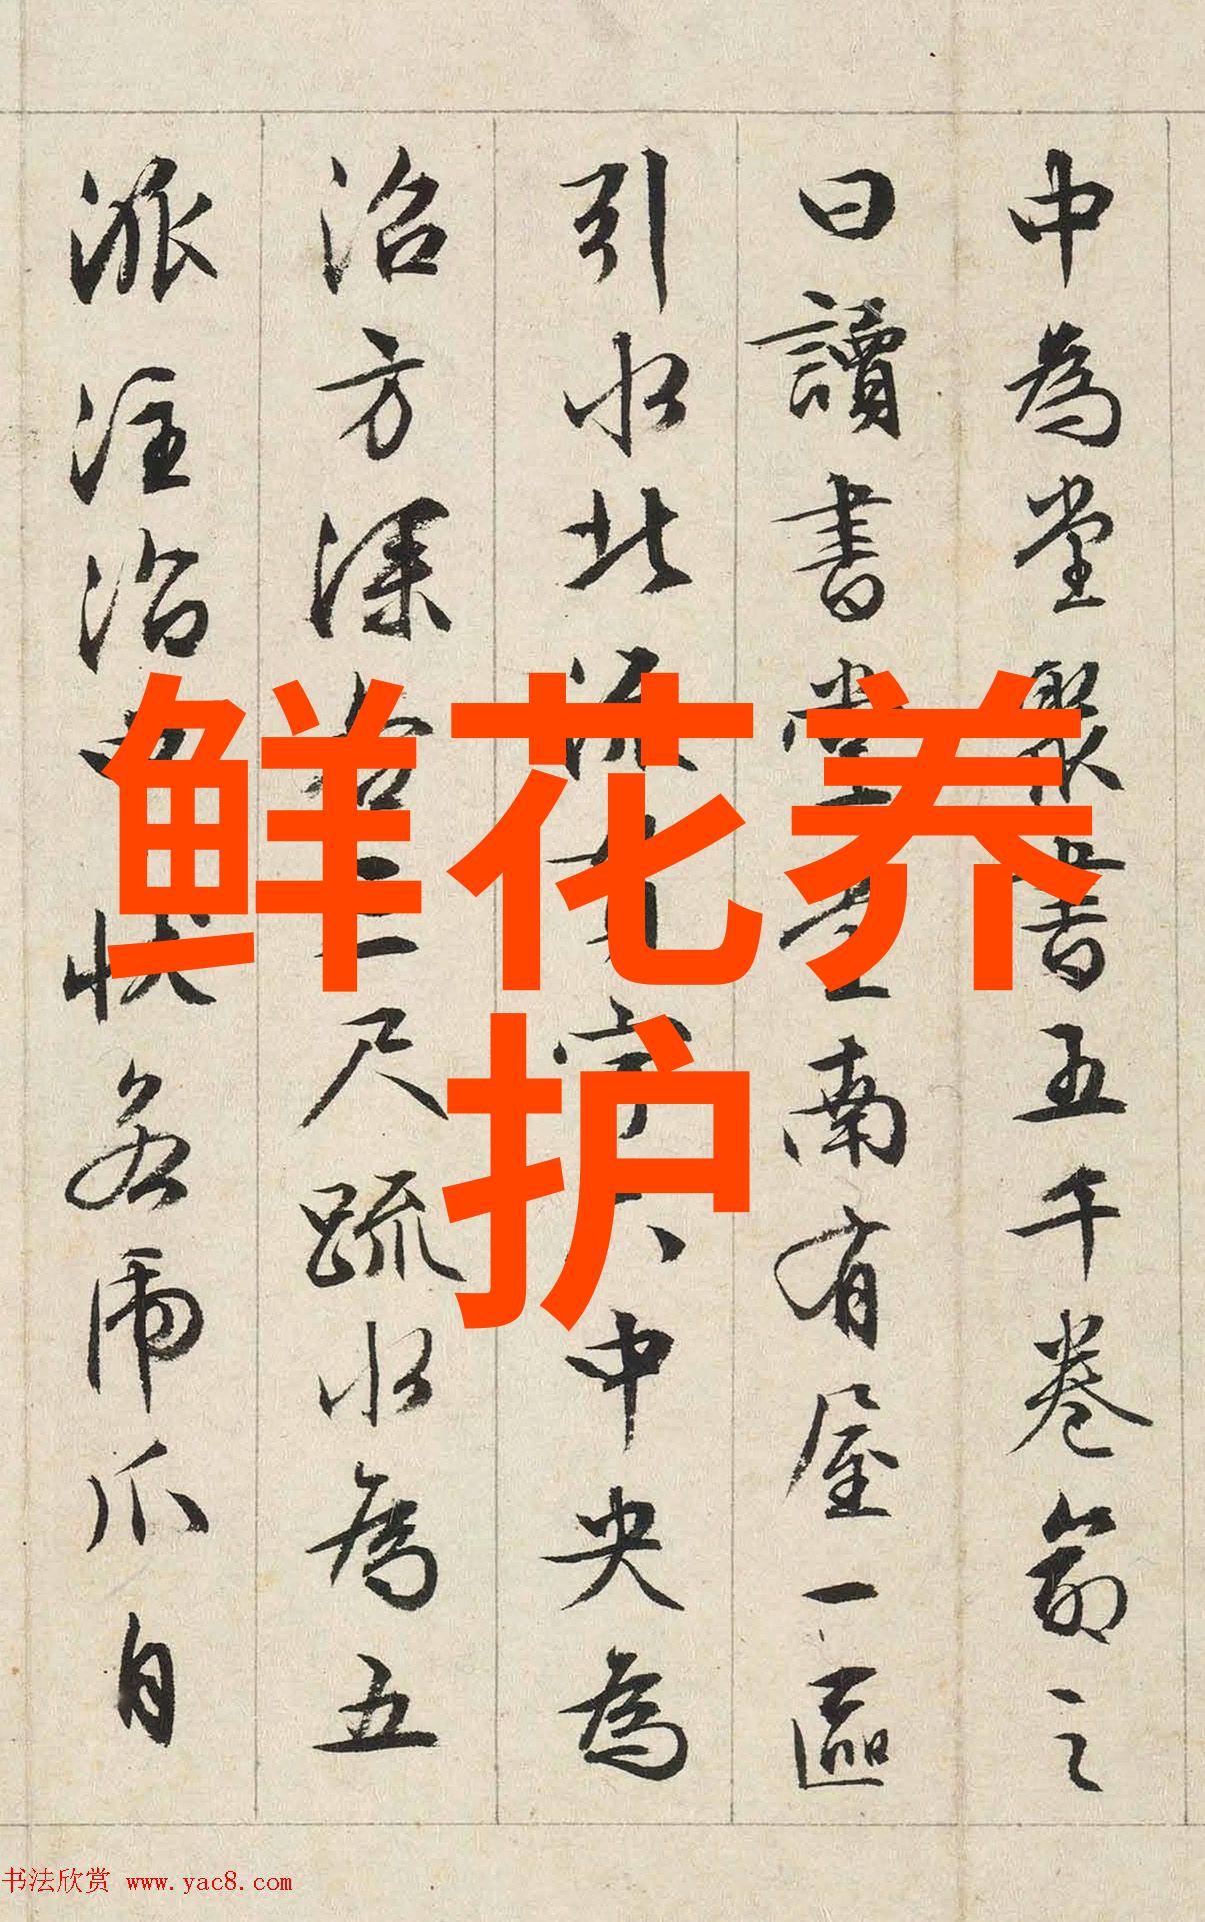 中為堂聚書五千卷命之
曰讀書堂堂南有屋一區
引水北流宇下中央為
沼方深各三尺疏水為五
派注沼中狀若虎爪自
鲜花养
护
书法欣赏 www.yac8.com